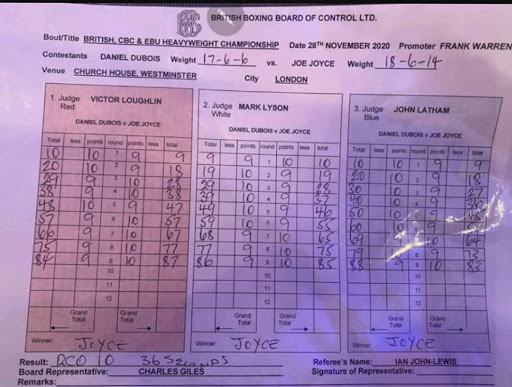 BRITISH BOXING BOARD OF CONTROL LTD.
Bout/Title BRITISH, CBC & EBU HEAVYWEIGHT CHAMPIONSHIP Date 28TH NOVEMBER 2020 Promoter FRANK WARREN
Contestants DANIEL DUBOIS Weight 17-6-6 vs. JOE JOYCE Weight 18-6-14
Venue CHURCH HOUSE, WESTMINSTER City LONDON
1. Judge VICTOR LOUGHLIN
Red
DANIEL DUBOIS v JOE JOYCE
Total less points round points less total
10 10 1 9 9
20 10 2 9 18
29 9 3 10 28
38 9 4 10 38
48 10 5 9 47
57 9 6 10 57
66 9 7 10 67
75 9 8 10 77
84 9 9 10 87
10
11
12
Grand Grand
Total Total
Winner: JOYCE
2. Judge MARK LYSON
White
DANIEL DUBOIS v JOE JOYCE
Total less points round points less total
9 9 1 10 10
19 10 2 9 19
29 10 3 9 28
39 10 4 9 37
49 10 5 9 46
59 10 6 9 55
68 9 7 10 65
9 8 10 75
86 9 9 10 85
10
11
12
Grand Grand
Total Total
Winner: JOYCE
3. Judge JOHN LATHAM
Blue
DANIEL DUBOIS v JOE JOYCE
Total less points round points less total
10 10 1 9 9
20 10 2 9 18
30 10 3 9 27
40 10 4 9 36
50 10 5 9 45
60 10 6 9
69 9 7 10 64
79 10 8 9 73
88 9 9 10 83
10
11
12
Grand Grand
Total Total
Winner: JOYCE
Result: RCO 10 36 SECONDS Referee's Name: IAN JOHN-LEWIS
Board Representative: CHARLES GILES Signature of Representative:
Remarks: